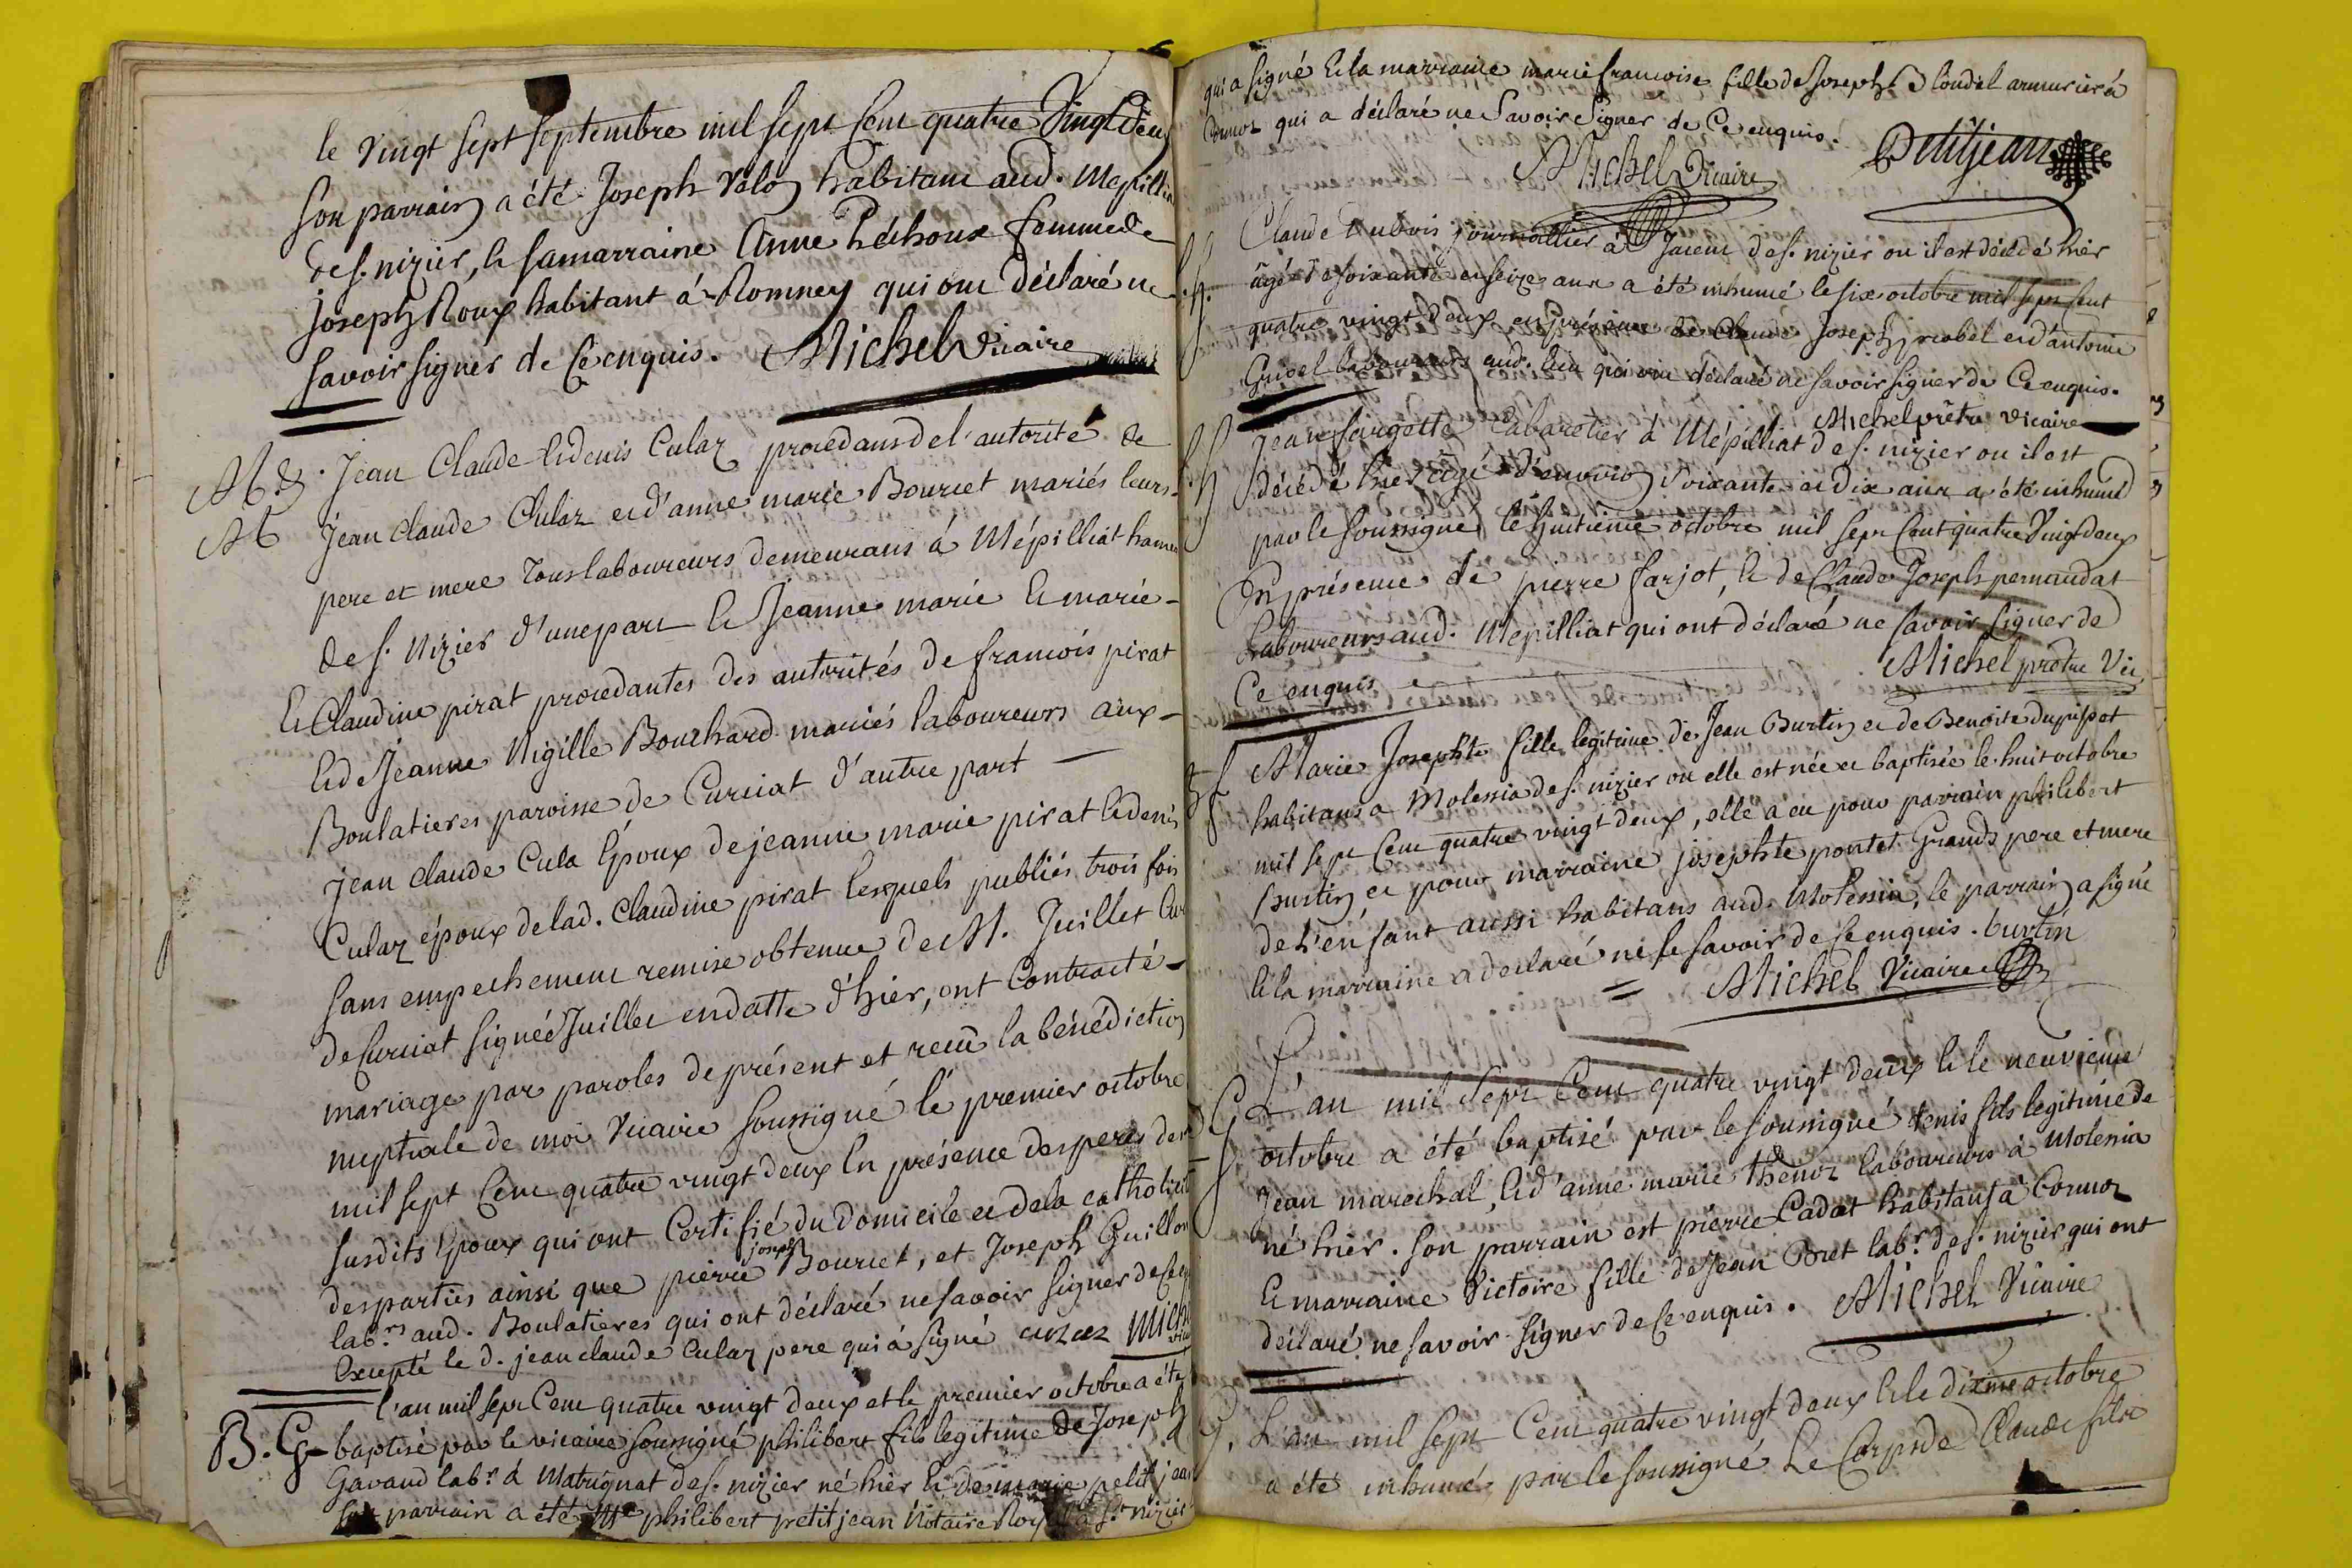 le vingt sept septembre mil sept cent quatre vingt deux
son parrain a été Joseph Valon habitant aud. Mépilliat
de s. nizier, & sa marraine Anne Péchoux femme de
joseph Roux habitant à Romney qui ont déclaré ne
savoir signer de ce enquis. Michel vicaire
M. & . Jean Claude & denis Culaz procedans de l'autorité de
M Jean claude Culaz et d'anne marie Bouriet mariés leurs
pere et mere tous laboureurs demeurans à Mépilliat hameau
de s. Nizier d'une part & Jeanne marie & marie
& Claudine pirat procedantes des autorités de francois pirat
& de Jeanne Nigille Bouchard mariés laboureurs aux
Boulatieres paroisse de Curciat d'autre part
Jean claude Cula époux de jeanne marie pirat & denis
Culaz époux de lad. Claudine pirat lesquels publiés trois fois
sans empechement remise obtenue de M. Juillet Curé
de Curciat signée Juillet en datte d'hier, ont contracté
mariage par paroles de présent et recu la bénédiction
nuptiale de moi vicaire soussigné le premier octobre
mil sept cent quatre vingt deux en présence des peres des
susdits époux qui ont certifié du domicile et de la catholicité
des parties ainsi que pierre joseph Bouriet, et Joseph Guillon
lab.rs aud. Boulatieres qui ont déclaré ne savoir signer de ce enquis
excepté le d. jean claude Culaz pere qui à signé culaz Michel vicaire
l'an mil sept cent quatre vingt deux et le premier octobre a été
B. G baptisé par le vicaire soussigné philibert fils legitime de Joseph
Gavand lab.r à Matrignat de s. nizier né hier & de marie petit jean
son parrain a été Me philibert petit jean Notaire Royal à St nizier
qui a signé & la marraine marie francoise fille de Joseph Blondel armurier à
Cormoz qui a déclaré ne savoir signer de ce enquis.
Michel vicaire Petitjean
Claude Dubois journallier à de s. nizier ou il est décédé hier
s. h. âgé de soixante et seize ans a été inhumé le six octobre mil sept cent
quatre vingt deux en présence de Claude Joseph nobel et d'antoine
Guigel laboureurs aud. lieu qui ont déclaré ne savoir signer de ce enquis.
Michel prêtre vicaire
s. h Jean fargette Cabaretier à Mépilliat de s. nizier ou il est
décédé hier âgé d'environ soixante et dix ans a été inhumé
par le soussigné le huitieme octobre mil sept cent quatre vingt deux
En présence de pierre farjot, & de Claude Joseph pernaudat
Laboureurs aud. Mépilliat qui ont déclaré ne savoir signer de
Ce enquis Michel prêtre Vic
Marie Josephte fille legitime de Jean Burtin et de Benoite dupispot
habitans à Molessia de s. nizier ou elle est née et baptisée le huit octobre
mil sept cent quatre vingt deux, elle a eu pour parrain philibert
Burtin et pour marraine josephte pontet Grands pere et mere
de l'enfant aussi habitans aud. Molessia, le parrain a signé
& la marraine a déclaré ne le savoir de ce enquis. burtin
Michel Vicaire
L'an mil sept cent quatre vingt deux & le neuvieme
octobre a été baptisé par le soussigné denis fils legitime de
Jean marechal, & d'anne marie thenoz laboureurs à Molessia
né hier. son parrain est pierre Cadot habitant à Cormoz
& marraine Victoire fille de Jean Bret lab.r de s. nizier qui ont
déclaré ne savoir signer de ce enquis. Michel Vicaire
L'an mil sept cent quatre vingt deux & le dixme octobre
a été inhumé par le soussigné Le Corps de Claude fils